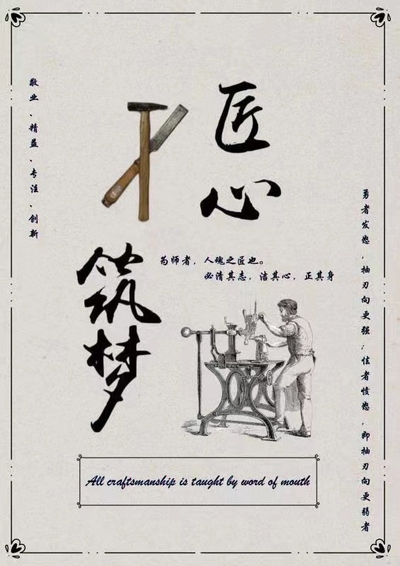 匠心
筑梦
敬业、精益、专注、创新
为师者，人魂之匠也。
必清其志，洁其心，正其身
勇者发愁，抽刃向更强；怯者愤愁，即抽刃向更弱者
All craftsmanship is taught by word of mouth